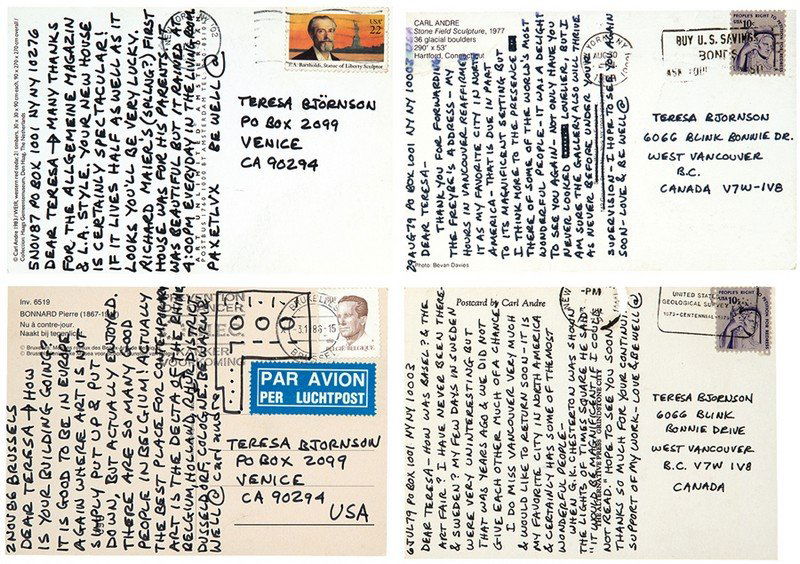 © Carl Andre 1983/VEER, western red cedar, 21 orders, 30 x 30 x 90 cm each, 90 x 270 x 270 cm overall /
Collection: Haags Gemeentemuseum, Den Haag, The Netherlands
5NOV87 PO BOX 1001 NY NY 10276
DEAR TERESA → MANY THANKS
FOR THE ALLGEMEINE MAGAZIN
& L.A. STYLE. YOUR NEW HOUSE
IS CERTAINLY SPECTACULAR!
IF IT LIVES HALF AS WELL AS IT
LOOKS YOU'LL BE VERY LUCKY.
RICHARD MAIER'S (SPLNG?) FIRST
HOUSE WAS FOR HIS PARENTS.
WAS BEAUTIFUL BUT IT RAINED AT
4:00PM EVERYDAY IN THE LIVING ROOM.
PAXETLVX BE WELL @
POSTBUS 17401001 JM AMSTERDAM
USA
22
F.A. Bartholdi, Statue of Liberty Sculptor
TERESA BJÖRNSON
PO BOX 2099
VENICE
CA 90294
CARL ANDRE
Stone Field Sculpture, 1977
36 glacial boulders
290' x 53'
Hartford, Connecticut
29AUG79 PO BOX 1001 NY NY 10003
DEAR TERESA-
THANK YOU FOR FORWARDING
THE FREYBE'S ADDRESS - MY
HOURS IN VANCOUVER REAFFIRMED
IT AS MY FAVORITE CITY IN NORTH
AMERICA - THAT IS DUE IN PART
TO ITS MAGNIFICENT SETTING BUT
I THINK MORE TO THE PRESENCE
THERE OF SOME OF THE WORLD'S MOST
WONDERFUL PEOPLE - IT WAS A DELIGHT
TO SEE YOU AGAIN - NOT ONLY HAVE YOU
NEVER LOOKED LOVELIER BUT I
AM SURE THE GALLERY ALSO WILL THRIVE
AS NEVER BEFORE UNDER YOUR
SUPERVISION - I HOPE TO SEE YOU AGAIN
SOON - LOVE & BE WELL @
Photo: Bevan Davies
BUY U.S. SAVINGS
BONDS
PEOPLE'S RIGHT TO
10c
TERESA BJORNSON
6066 BLINK BONNIE DR.
WEST VANCOUVER
B.C.
CANADA V7W-1V8
Inv. 6519
BONNARD Pierre (1867-
Nu à contre-jour.
Naakt bij tegenlicht
2NOV86 BRUSSELS
DEAR TERESA → HOW
IS YOUR BUILDING GOING?
IT IS GOOD TO BE IN EUROPE
AGAIN WHERE ART IS NOT
SIMPLY PUT UP & PUT
DOWN, BUT ACTUALLY ENJOYED.
THERE ARE SO MANY GOOD
PEOPLE IN BELGIUM ACTUALLY
THE BEST PLACE FOR CONTEMPORARY
ART IS THE DELTA OF THE RHINE
BELGIUM, HOLLAND, RUHR DISTRICT
DUSSELDORF, COLOGNE. BE WARM &
WELL @ carl andre
BRUXELLES
-3.11.86-15
BRUSSEL
BELGIE-BELGIQUE
PAR AVION
PER LUCHTPOST
TERESA BJORNSON
PO BOX 2099
VENICE
CA 90294
USA
Postcard by Carl Andre
6JUL79 PO BOX 1001 NY NY 10003
DEAR TERESA - HOW WAS BASEL? & THE
ART FAIR? I HAVE NEVER BEEN THERE
& SWEDEN? MY FEW DAYS IN SWEDEN
WERE VERY UNINTERESTING BUT
THAT WAS YEARS AGO & WE DID NOT
GIVE EACH OTHER MUCH OF A CHANCE
I DO MISS VANCOUVER VERY MUCH
& WOULD LIKE TO RETURN SOON - IT IS
MY FAVORITE CITY IN NORTH AMERICA
& CERTAINLY HAS SOME OF THE MOST
WONDERFUL PEOPLE -
WHEN G.K. CHESTERTON WAS SHOWN
THE LIGHTS OF TIMES SQUARE HE SAID
"IT WOULD BE MAGNIFICENT IF I COULD
NOT READ." HOPE TO SEE YOU SOON
THANKS SO MUCH FOR YOUR CONTINUING
SUPPORT OF MY WORK - LOVE & BE WELL @
THE ALTERNATIVE PRESS GRINDSTONE CITY
PM
UNITED STATES
GEOLOGICAL SURVEY
1879-CENTENNIAL-1979
10c
TERESA BJORNSON
6066 BLINK
BONNIE DRIVE
WEST VANCOUVER
B.C. V7W 1V8
CANADA